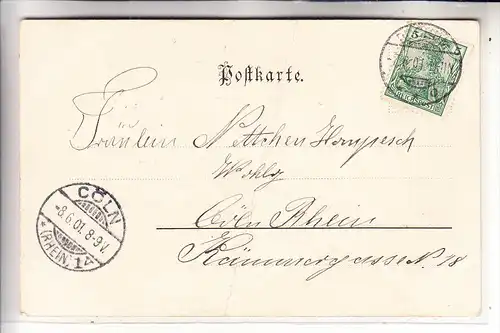 Postkarte.
Fräulein Nettchen Hompesch
Wohlg
Cöln Rhein
Kämmergasse N. 18
CÖLN
-8.6.01. 8-9V.
* (RHEIN) 14
REICHSPOST